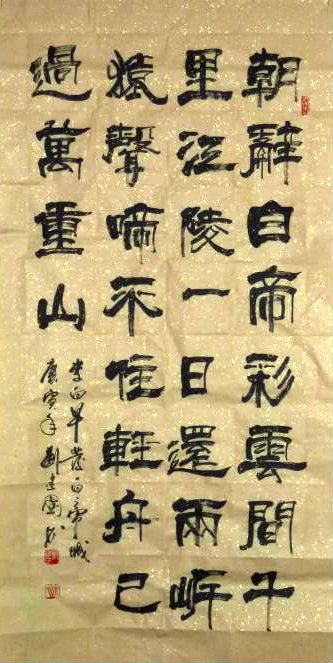 朝辭白帝彩雲間千
里江陵一日還兩岸
猿聲啼不住輕舟已
過萬重山
李白早發白帝城
庚寅年